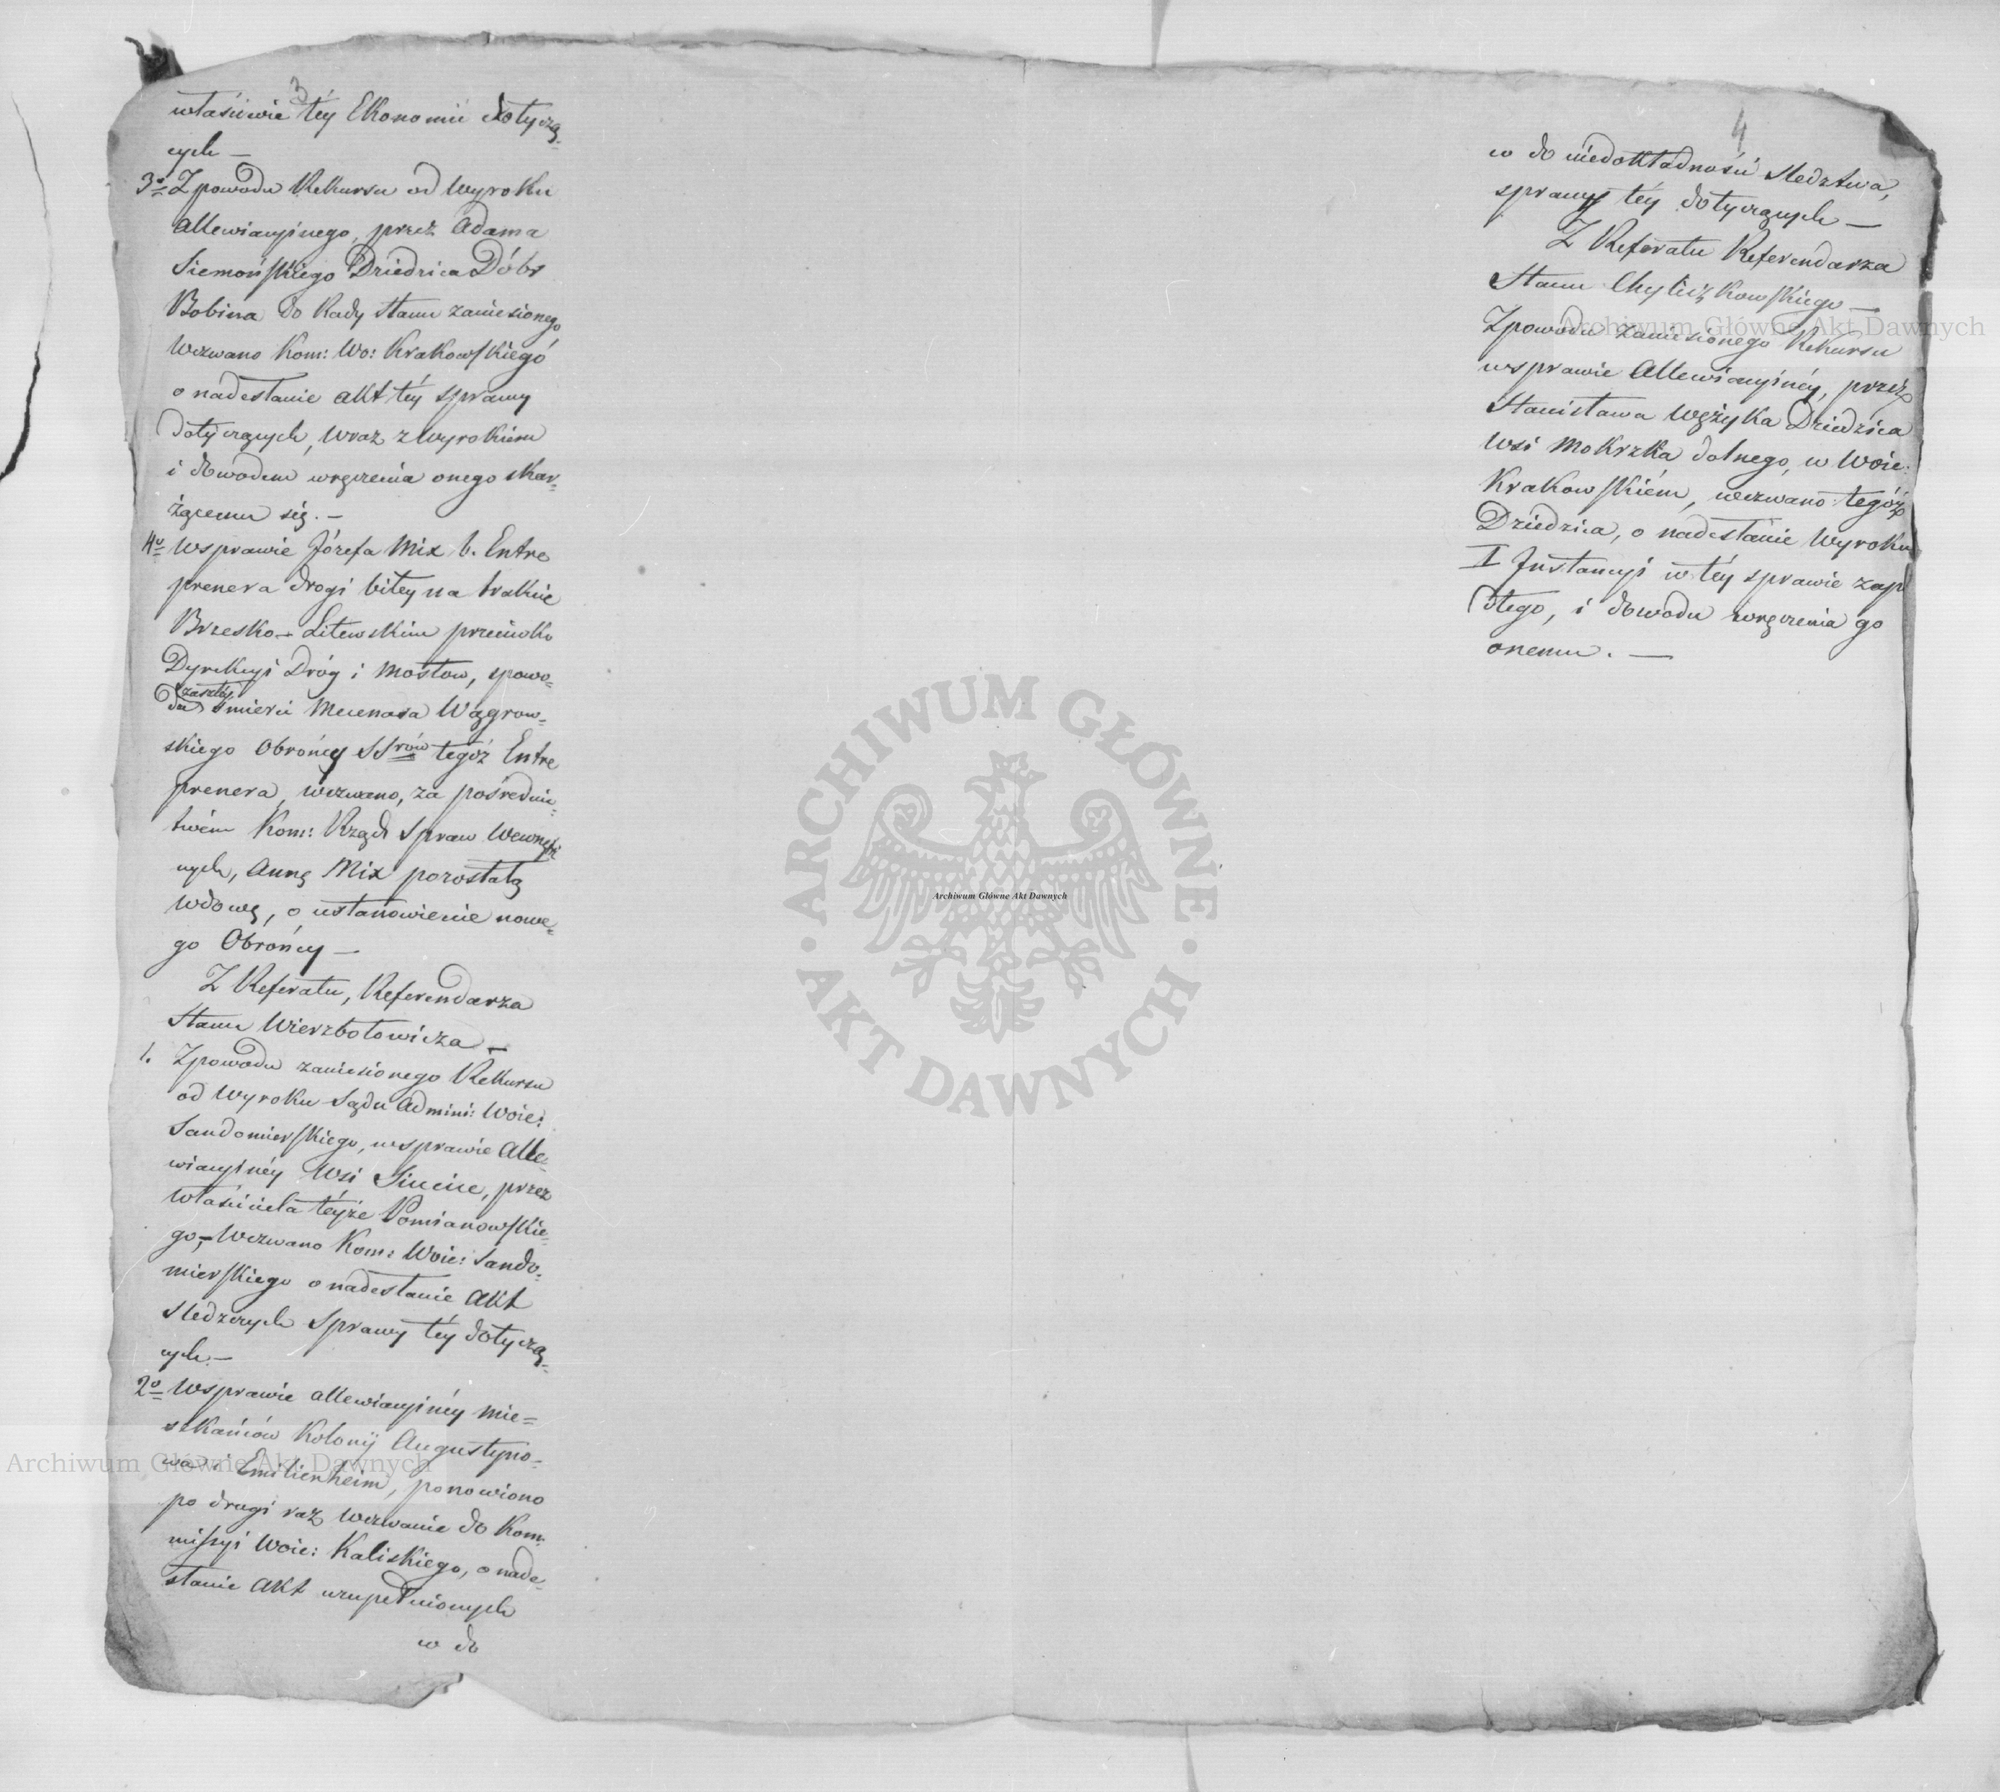 3
właściwie téy Ekonomii dotyczą=
cych —
3o Z powodu Rekursu od Wyroku
allewiacyinego, przez Adama
Siemońskiego Dziedzica Dóbr
Bobina do Rady Stanu zaniesionego
Wezwano Kom: Wo: Krakowskiego
o nadesłanie akt téy sprawy
dotyczących, wraz z wyrokiem
i dowodem wręczenia onego skar=
żącemu się. —
4o W sprawie Józefa Mix b. Entre
prenera drogi bitey na trakcie
Brzesko-Litewskim przeciwko
Dyrekcyi Dróg i Mostow, z powo=
du zaszłéy śmierci Mecenasa Wągrow=
skiego Obrońcy SSrów tegóż Entre
prenera, wezwano, za pośrednic=
twém Kom: Rząd: Spraw Wewnętrz
nych, Annę Mix pozostałą
Wdowę, o ustanowienie nowe=
go Obrońcy —
Z Referatu, Referendarza
Stanu Wierzbołowicza —
1. Z powodu zaniesionego Rekursu
od Wyroku Sądu Admini: Woie:
Sandomierskiego, w sprawie Alle=
wiacyinéy Wsi Siucice, przez
Właściciela téyże Pomianowskie=
go, — Wezwano Kom: Woie: Sando=
mierskiego o nadesłanie akt
śledczych sprawy téy dotyczą=
cych. —
2o W sprawie allewiacyinéy mie=
szkańców Kolonij Augustyno=
wa i Emilienheim, ponowiono
po drugi raz wezwanie do Kom=
missyi Woie: Kaliskiego, o nade=
słanie akt uzupełnionych
w do
4
w do niedokładności śledztwa,
sprawy téy dotyczących —
Z Referatu Referendarza
Stanu Chyliczkowskiego —
Z powodu zaniesionego Rekursu
w sprawie Allewiacyinéy, przez
Stanisława Wężyka Dziedzica
Wsi Mokrzka dolnego, w Woie:
Krakowskiém, wezwano tegóż
Dziedzica, o nadesłanie Wyroku
I Instancyi w téy sprawie zapa
dłego, i dowodu wręczenia go
onemu. —
Archiwum Główne Akt Dawnych
ARCHIWUM GŁÓWNE
AKT DAWNYCH
Archiwum Główne Akt Dawnych
Archiwum Główne Akt Dawnych